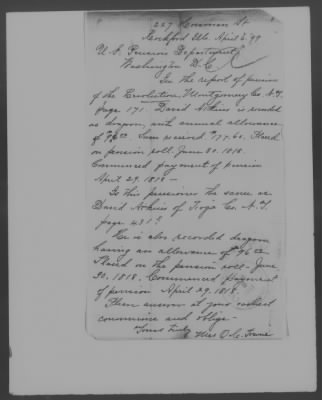 227 Kinsman St
Rockford Ills. April 6, 99
U. S. Pension Department
Washington D.C.
In the report of pension
of the Revolution Montgomery Co. N.Y.
page 171 - David Atkins is recorded
as dragoon, with annual allowance
of $96.00 Sum received $177.60. Placed
on pension roll June 30. 1818.
Commenced payment of pension
April 29. 1818 -
Is this pensioner the same as
David Atkins of Tioga Co. N.Y.
page 431?
He is also recorded dragoon
having an allowance of $96.00
Placed on the pension roll - June
30, 1818. Commenced payment
of pension April 29, 1818.
Please answer at your earliest
convenience and oblige -
Yours truly
Mrs O. C.